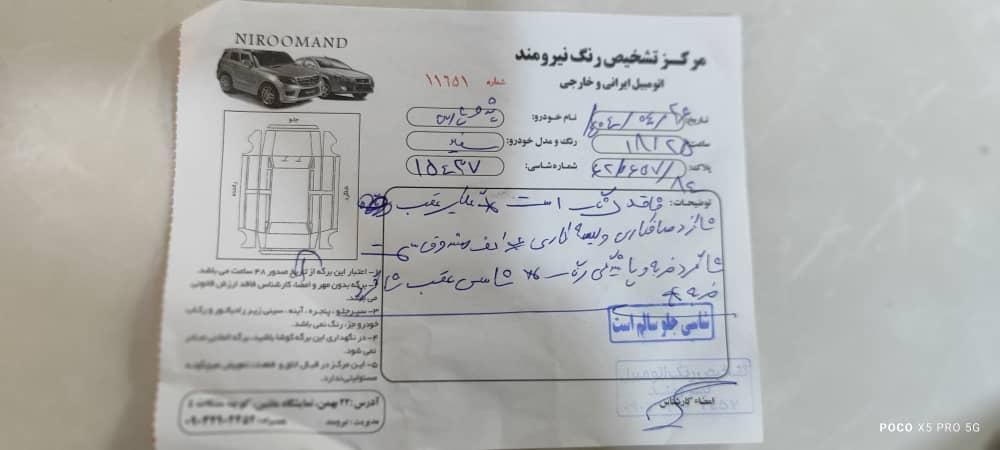 NIROOMAND
مرکز تشخیص رنگ نیرومند
اتومبیل ایرانی و خارجی
شماره ۱۱۶۵۱
تاریخ:
نام خودرو: پژو پارس
ساعت: ۱۸/۲۵
رنگ و مدل خودرو: سفید
پلاک:
شماره شاسی: ۱۵۴۳۷
جلو
راننده
شاگرد
توضیحات: فاقد رنگ است * گلگیر عقب
شاگرد صافکاری و لیسه کاری * کف صندوق سمت
شاگرد ضربه و پایین * شاسی عقب شاگرد
ضربه *
شاسی جلو سالم است
۱- اعتبار این برگه از تاریخ صدور ۴۸ ساعت می باشد.
۲- برگه بدون مهر و امضاء کارشناس فاقد ارزش قانونی
می باشد.
۳- سپر جلو، پنجره، آینه، سینی زیر رادیاتور و رکاب
خودرو جزء رنگ نمی باشد.
۴- در نگهداری این برگه کوشا باشید. برگه المثنی صادر
نمی شود.
۵- این مرکز در قبال اتاق و قطعات تعویض هیچگونه
مسئولیتی ندارد.
آدرس: ۲۲ بهمن، نمایشگاه ماشین،
مدیریت: نیرومند همراه:
امضاء کارشناس
POCO X5 PRO 5G